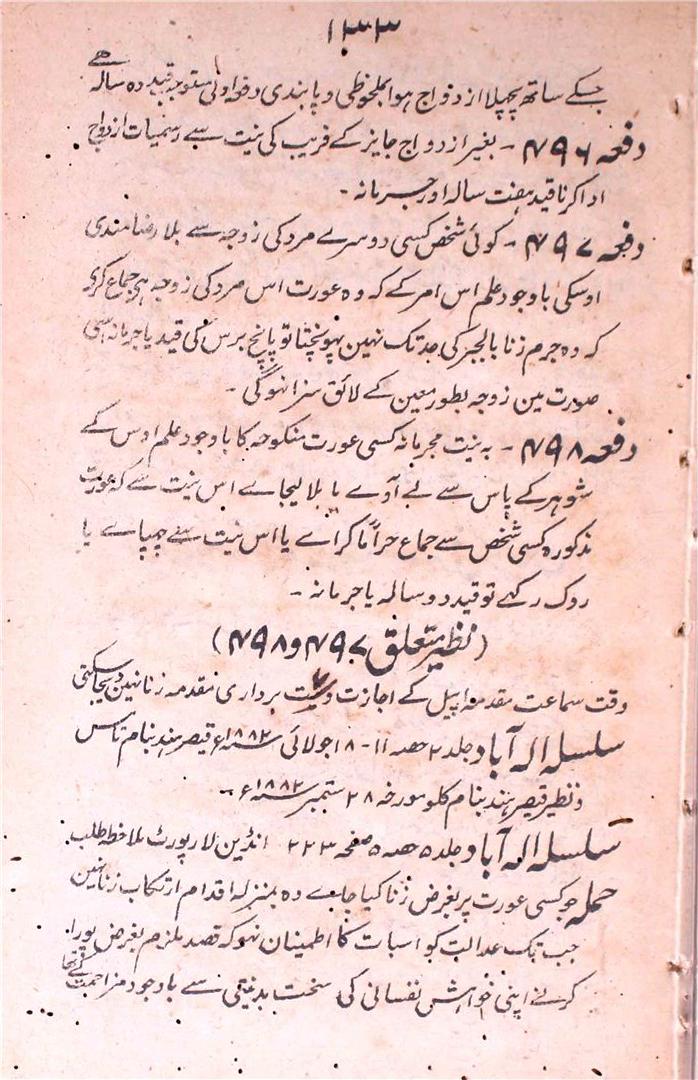 ۱۳۳
جسکے ساتھ پچھلا ازدواج ہوا بملحوظی و پابندی دفعہ اولیٰ مستوجب قید دہ سالہ ہے
دفعہ ۴۹۶ - بغیر ازدواج جایز کے فریب کی نیت سے رسمیات ازدواج
ادا کرنا قید ہفت سالہ اور جرمانہ -
دفعہ ۴۹۷ - کوئی شخص کسی دوسرے مرد کی زوجہ سے بلا رضامندی
اوسکی باوجود علم اس امر کے کہ وہ عورت اس مرد کی زوجہ ہی جماع کری
کہ وہ جرم زنا بالجبر کی حد تک نہین پہونچتا تو پانچ برس کی قید یا جرمانہ اسی
صورت مین زوجہ بطور معین کے لائق سزا نہوگی -
دفعہ ۴۹۸ - بہ نیت مجرمانہ کسی عورت منکوحہ کا باوجود علم اوس کے
شوہر کے پاس سے لے آوے یا بلا لیجاے اس نیت سے کہ عورت
مذکورہ کسی شخص سے جماع حراماً کراے یا اس نیت سے چھپاے یا
روک رکہے تو قید دو سالہ یا جرمانہ -
(نظیر متعلق ۴۹۷ و ۴۹۸)
وقت سماعت مقدمہ اپیل کے اجازت دست برداری مقدمہ زنا نہین دیجاسکتی
سلسلہ الہ آباد جلد ۲ حصہ ۱۱ - ۱۸ جولائی ۱۸۸۲ء قیصر ہند بنام تاکس
و نظیر قیصر ہند بنام کلو مورخہ ۲۸ ستمبر ۱۸۸۲ء -
سلسلہ الہ آباد جلد ۵ حصہ ۵ صفحہ ۲۲۳ انڈین لا رپورٹ ملاحظہ طلب
حملہ جو کسی عورت پر بغرض زنا کیا جاوے وہ بمنزلہ اقدام ارتکاب زنا نہین
جب تک عدالت کو اسبات کا اطمینان نہو کہ قصد ملزم بغرض پورا
کرنے اپنی خواہش نفسانی کی سخت بدنیتی سے باوجود مزاحمت کے تھا